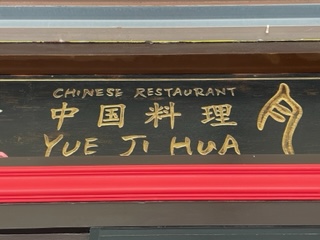 CHINESE RESTAURANT
中国料理
YUE JI HUA